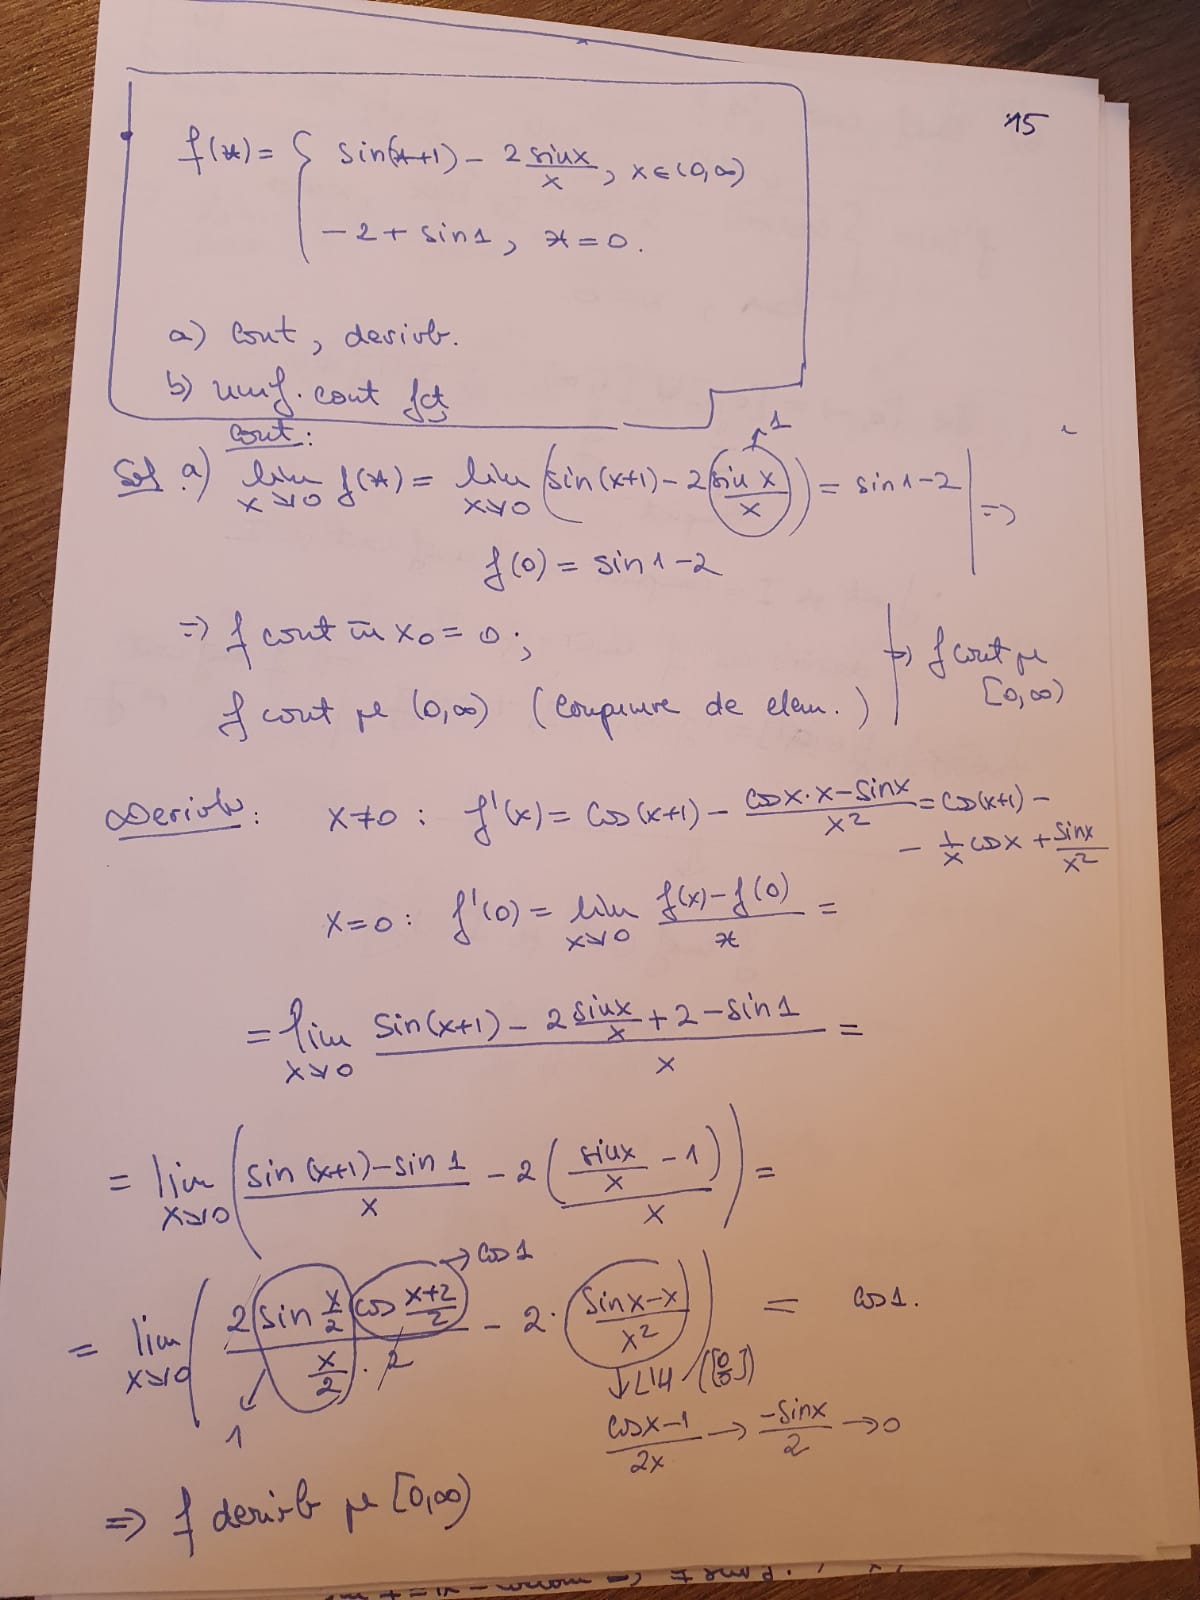 15
f(x) = { sin(x+1) - 2 sinx/x , x ∈ (0,∞)
-2 + sin1 , x = 0.
a) Cont, derivb.
b) unif. cont fct
Cont:
Sol a) lim x↘0 f(x) = lim x↘0 (sin(x+1) - 2 sin x/x) = sin1 - 2 | =>
→1
f(0) = sin1 - 2
=> f cont în x₀ = 0 ;
f cont pe (0,∞) (compunere de elem.) | => f cont pe [0,∞)
Derivb: x≠0 : f'(x) = cos(x+1) - (cosx·x - sinx)/x² = cos(x+1) -
- 1/x cosx + sinx/x²
x=0 : f'(0) = lim x↘0 (f(x) - f(0))/x =
= lim x↘0 (sin(x+1) - 2 sinx/x + 2 - sin1)/x =
= lim x↘0 ( (sin(x+1) - sin1)/x - 2 (sinx/x - 1)/x ) =
→ cos1
= lim x↘0 ( (2 sin x/2 cos (x+2)/2)/(x/2 · 2) - 2 · (sinx - x)/x² ) = cos1.
1
↓ L'H ([0/0])
(cosx - 1)/2x → -sinx/2 → 0
=> f derivb pe [0,∞)